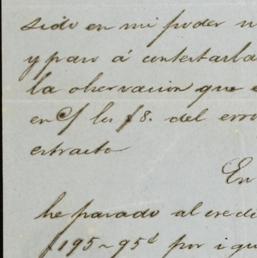 sido en mi poder
y paso á contestarla
la observacion que
en C/ los f8. del erro
estracto
En
he pasado al cred
f195~95d por igu